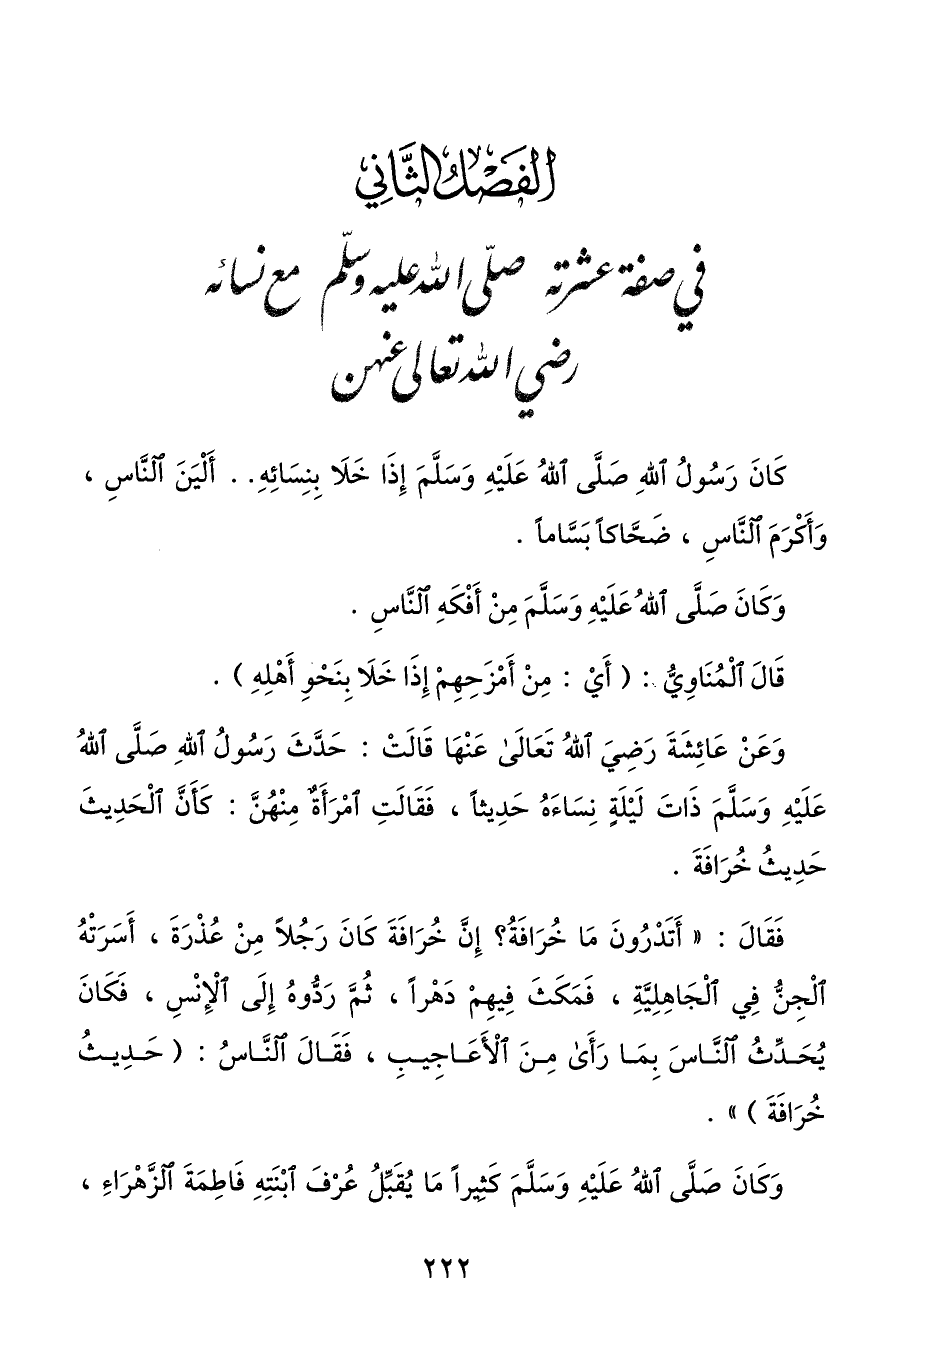 الفَصْلُ الثَّانِي
في صفة عشرته صلّى الله عليه وسلّم مع نسائه
رضي الله تعالى عنهن
كَانَ رَسُولُ ٱللهِ صَلَّى ٱللهُ عَلَيْهِ وَسَلَّمَ إِذَا خَلَا بِنِسَائِهِ.. أَلْيَنَ ٱلنَّاسِ ،
وَأَكْرَمَ ٱلنَّاسِ ، ضَحَّاكاً بَسَّاماً .
وَكَانَ صَلَّى ٱللهُ عَلَيْهِ وَسَلَّمَ مِنْ أَفْكَهِ ٱلنَّاسِ .
قَالَ ٱلْمُنَاوِيُّ : ( أَيْ : مِنْ أَمْزَحِهِمْ إِذَا خَلَا بِنَحْوِ أَهْلِهِ ) .
وَعَنْ عَائِشَةَ رَضِيَ ٱللهُ تَعَالَىٰ عَنْهَا قَالَتْ : حَدَّثَ رَسُولُ ٱللهِ صَلَّى ٱللهُ
عَلَيْهِ وَسَلَّمَ ذَاتَ لَيْلَةٍ نِسَاءَهُ حَدِيثاً ، فَقَالَتِ ٱمْرَأَةٌ مِنْهُنَّ : كَأَنَّ ٱلْحَدِيثَ
حَدِيثُ خُرَافَةَ .
فَقَالَ : « أَتَدْرُونَ مَا خُرَافَةُ؟ إِنَّ خُرَافَةَ كَانَ رَجُلاً مِنْ عُذْرَةَ ، أَسَرَتْهُ
ٱلْجِنُّ فِي ٱلْجَاهِلِيَّةِ ، فَمَكَثَ فِيهِمْ دَهْراً ، ثُمَّ رَدُّوهُ إِلَى ٱلْإِنْسِ ، فَكَانَ
يُحَدِّثُ ٱلنَّاسَ بِمَا رَأَىٰ مِنَ ٱلْأَعَاجِيبِ ، فَقَالَ ٱلنَّاسُ : ( حَدِيثُ
خُرَافَةَ ) » .
وَكَانَ صَلَّى ٱللهُ عَلَيْهِ وَسَلَّمَ كَثِيراً مَا يُقَبِّلُ عُرْفَ ٱبْنَتِهِ فَاطِمَةَ ٱلزَّهْرَاءِ ،
٢٢٢